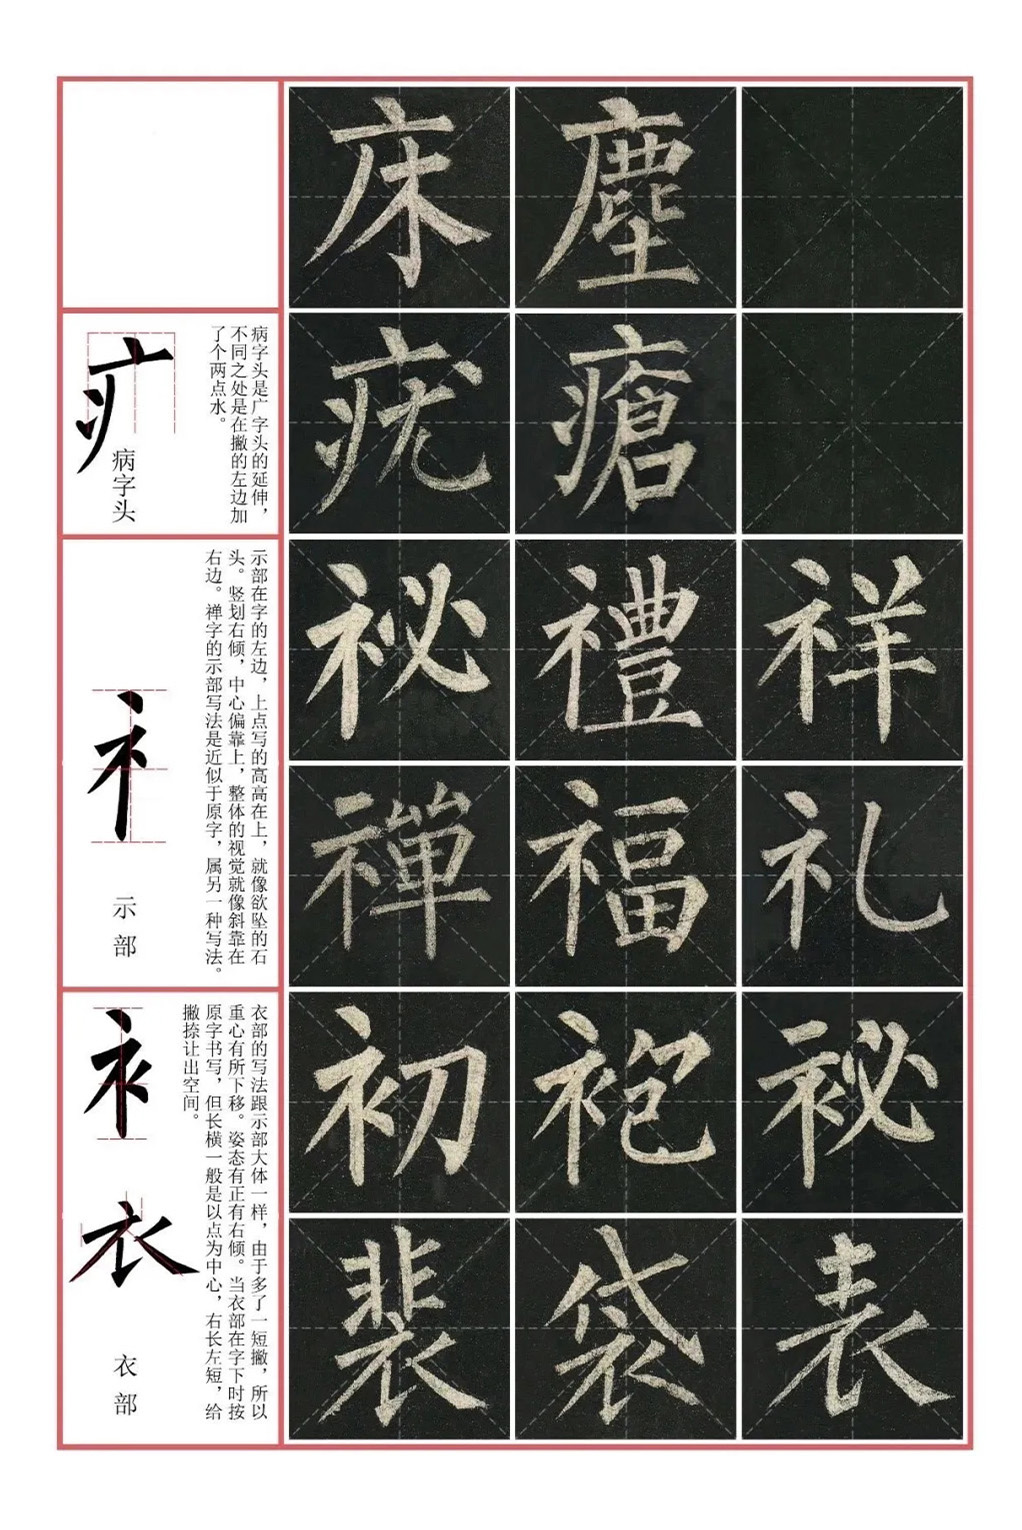 床 塵
病字头是广字头的延伸，
不同之处是在撇的左边加
了个两点水。
疒
病字头
疣 瘡
示部在字的左边，上点写的高高在上，就像欲坠的石
头。竖划右倾，中心偏靠上，整体的视觉就像斜靠在
右边。禅字的示部写法是近似于原字，属另一种写法。
礻
示部
祕 禮 祥
禪 福 礼
衣部的写法跟示部大体一样，由于多了一短撇，所以
重心有所下移。姿态有正有右倾。当衣部在字下时按
原字书写，但长横一般是以点为中心，右长左短，给
撇捺让出空间。
衤
衣
衣部
初 袍 袐
裴 袋 表